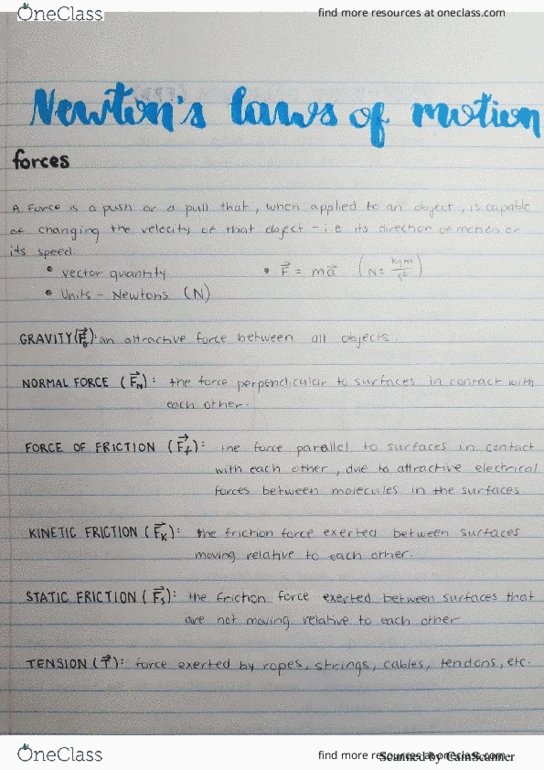 OneClass find more resources at oneclass.com
Newton's laws of motion
forces
A Force is a push or a pull that, when applied to an object, is capable
of changing the velocity of that object - i.e its direction of motion or
its speed.
• vector quantity • F⃗ = ma⃗ (N = kgm/s²)
• Units - Newtons (N)
GRAVITY (F⃗g): an attractive force between all objects.
NORMAL FORCE (F⃗N): the force perpendicular to surfaces in contact with
each other.
FORCE OF FRICTION (F⃗f): the force parallel to surfaces in contact
with each other, due to attractive electrical
forces between molecules in the surfaces.
KINETIC FRICTION (F⃗K): the friction force exerted between surfaces
moving relative to each other.
STATIC FRICTION (F⃗s): the friction force exerted between surfaces that
are not moving relative to each other
TENSION (T⃗): force exerted by ropes, strings, cables, tendons, etc.
OneClass find more resources at oneclass.com
Scanned by CamScanner